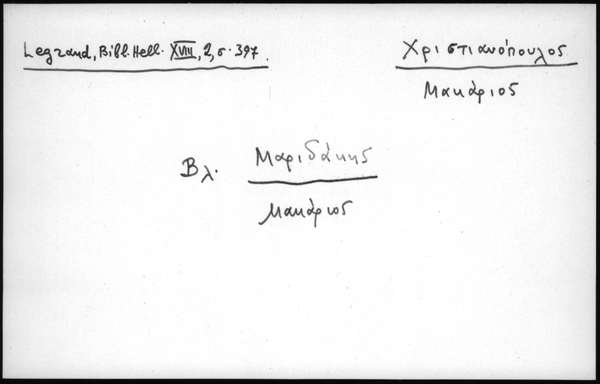 Legrand, Bibl. Hell. XVIII, 2, σ. 397.
Χριστιανόπουλος
Μακάριος
Βλ. Μαριδάκης
Μακάριος